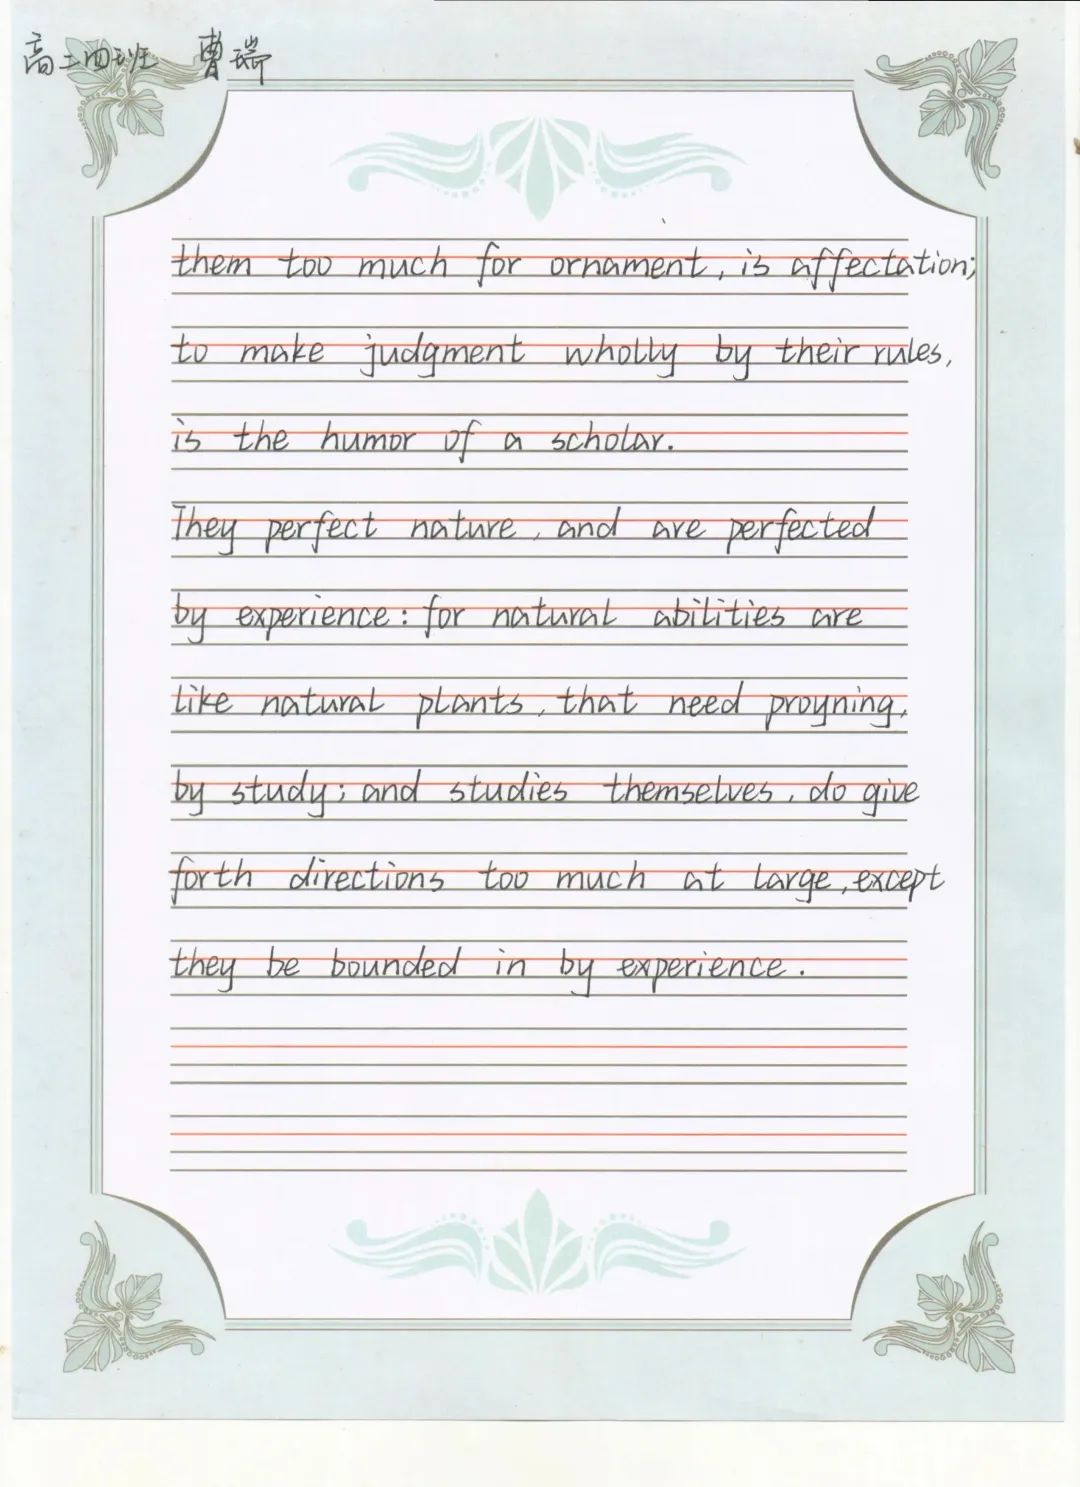 高三四班 曹瑞
them too much for ornament, is affectation;
to make judgment wholly by their rules,
is the humor of a scholar.
They perfect nature, and are perfected
by experience: for natural abilities are
like natural plants, that need proyning,
by study; and studies themselves, do give
forth directions too much at large, except
they be bounded in by experience.